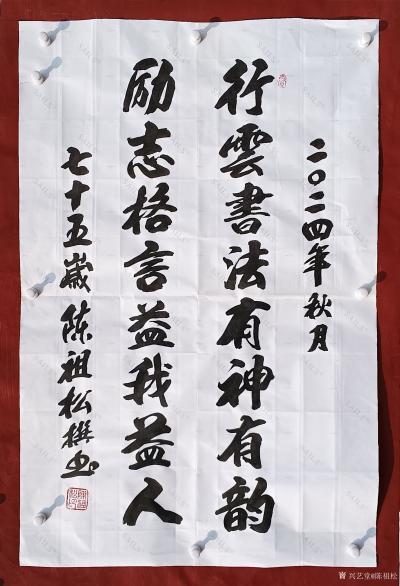 二〇二四年秋月
行雲書法有神有韵
励志格言益我益人
七十五歲陈祖松撰书
兴艺堂@陈祖松